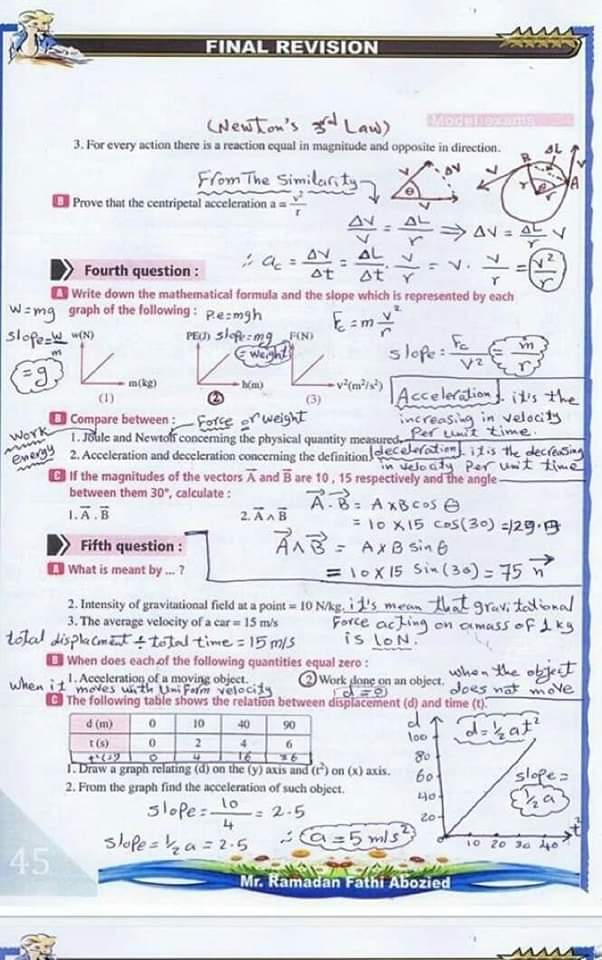 FINAL REVISION
Model exams
(Newton's 3rd Law)
3. For every action there is a reaction equal in magnitude and opposite in direction.
From The Similarity
B Prove that the centripetal acceleration a = v²/r
ΔV/V = ΔL/r ⇒ ΔV = ΔL/r V
∴ ac = ΔV/Δt = ΔL/Δt · V/r = V · V/r = V²/r
Fourth question :
A Write down the mathematical formula and the slope which is represented by each
graph of the following :
W=mg
P.e=mgh
Fc = m V²/r
slope = W/m = g
slope = mg = weight
slope = Fc/V² = m/r
w(N)
m(kg)
(1)
PE(J)
h(m)
(2)
F(N)
v²(m²/s²)
(3)
B Compare between :
Force or weight
Work
energy
1. Joule and Newton concerning the physical quantity measured.
2. Acceleration and deceleration concerning the definition.
Acceleration, it's the
increasing in velocity
Per unit time.
deceleration. it is the decreasing
in velocity Per unit time
C If the magnitudes of the vectors A and B are 10 , 15 respectively and the angle
between them 30°, calculate :
1. A . B
2. A ∧ B
A · B = A x B cos θ
= 10 x 15 cos(30) = 129.9
A ∧ B = A x B sin θ
= 10 x 15 Sin (30) = 75 n
Fifth question :
A What is meant by ... ?
2. Intensity of gravitational field at a point = 10 N/kg.
it's mean that gravitational
Force acting on a mass of 1 kg
is 10 N.
3. The average velocity of a car = 15 m/s
total displacment ÷ total time = 15 m/s
B When does each of the following quantities equal zero :
1. Acceleration of a moving object.
when it moves with Uniform velocity
2 Work done on an object.
(d = 0)
when the object
does not move
C The following table shows the relation between displacement (d) and time (t).
d (m) 0 10 40 90
t (s) 0 2 4 6
t²(s²) 0 4 16 36
1. Draw a graph relating (d) on the (y) axis and (t²) on (x) axis.
2. From the graph find the acceleration of such object.
slope = 10/4 = 2.5
slope = ½ a = 2.5 ∴ a = 5 m/s²
d
100
80
60
40
20
0
10 20 30 40
t²
d = ½ at²
slope =
½ a
45
Mr. Ramadan Fathi Abozied